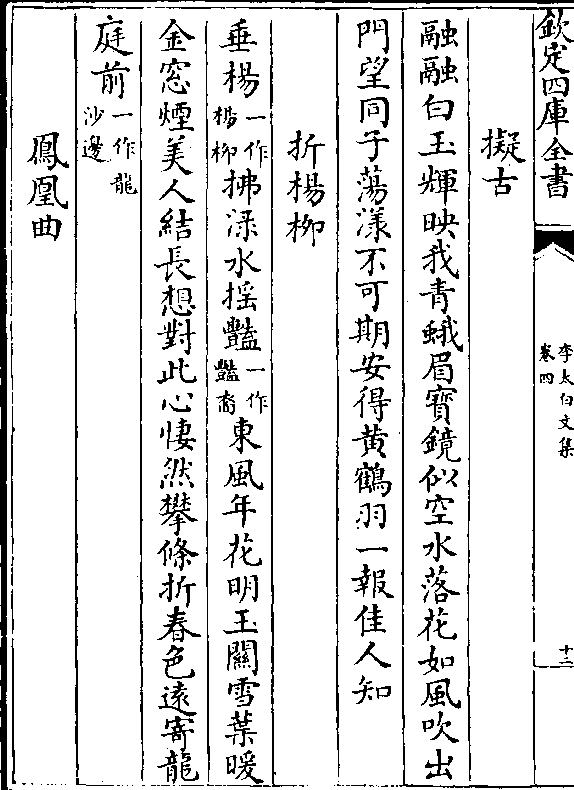 欽定四庫全書
李太白文集
卷四
十二
擬古
融融白玉輝映我青蛾眉寶鏡似空水落花如風吹出
門望同子蕩漾不可期安得黄鶴羽一報佳人知
折楊柳
垂楊一作楊柳拂渌水揺豔一作豔裔東風年花明玉關雪葉暖
金窓煙美人結長想對此心悽然攀條折春色逺寄龍
庭前一作龍沙邊
鳳凰曲